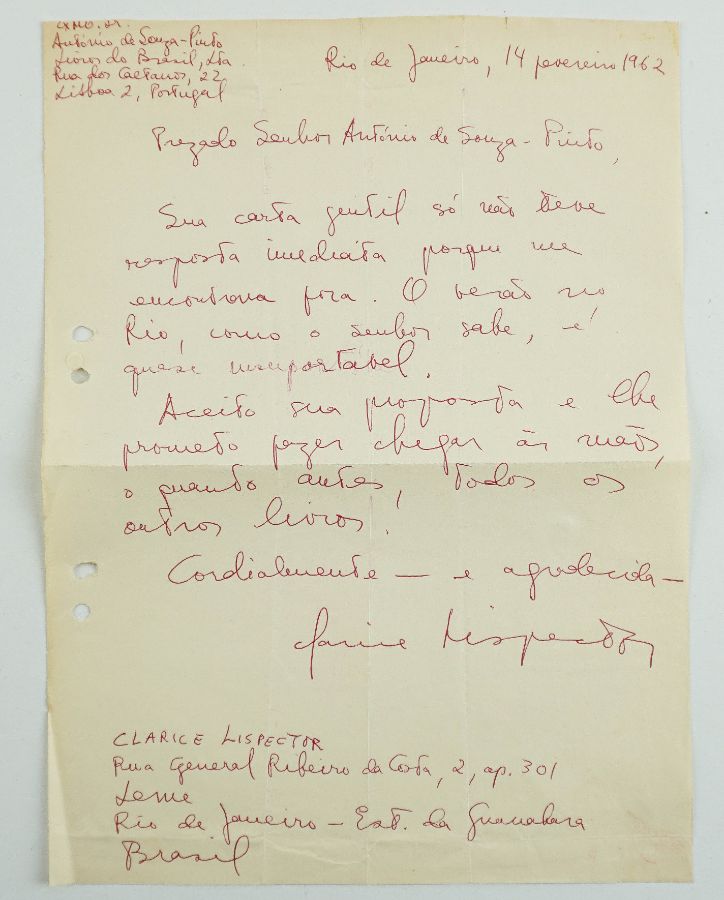 EXMO. SR.
António de Souza-Pinto
Livros do Brasil, Lta
Rua dos Caetanos, 22
Lisboa 2, Portugal
Rio de Janeiro, 14 fevereiro 1962
Prezado Senhor António de Souza-Pinto,
Sua carta gentil só não teve
resposta imediata porque me
encontrava fora. O verão no
Rio, como o senhor sabe, é
quase insuportável.
Aceito sua proposta e lhe
prometo fazer chegar às mãos,
o quanto antes, todos os
outros livros.
Cordialmente — e agradecida —
Clarice Lispector
CLARICE LISPECTOR
Rua General Ribeiro da Costa, 2, ap. 301
Leme
Rio de Janeiro — Est. da Guanabara
Brasil